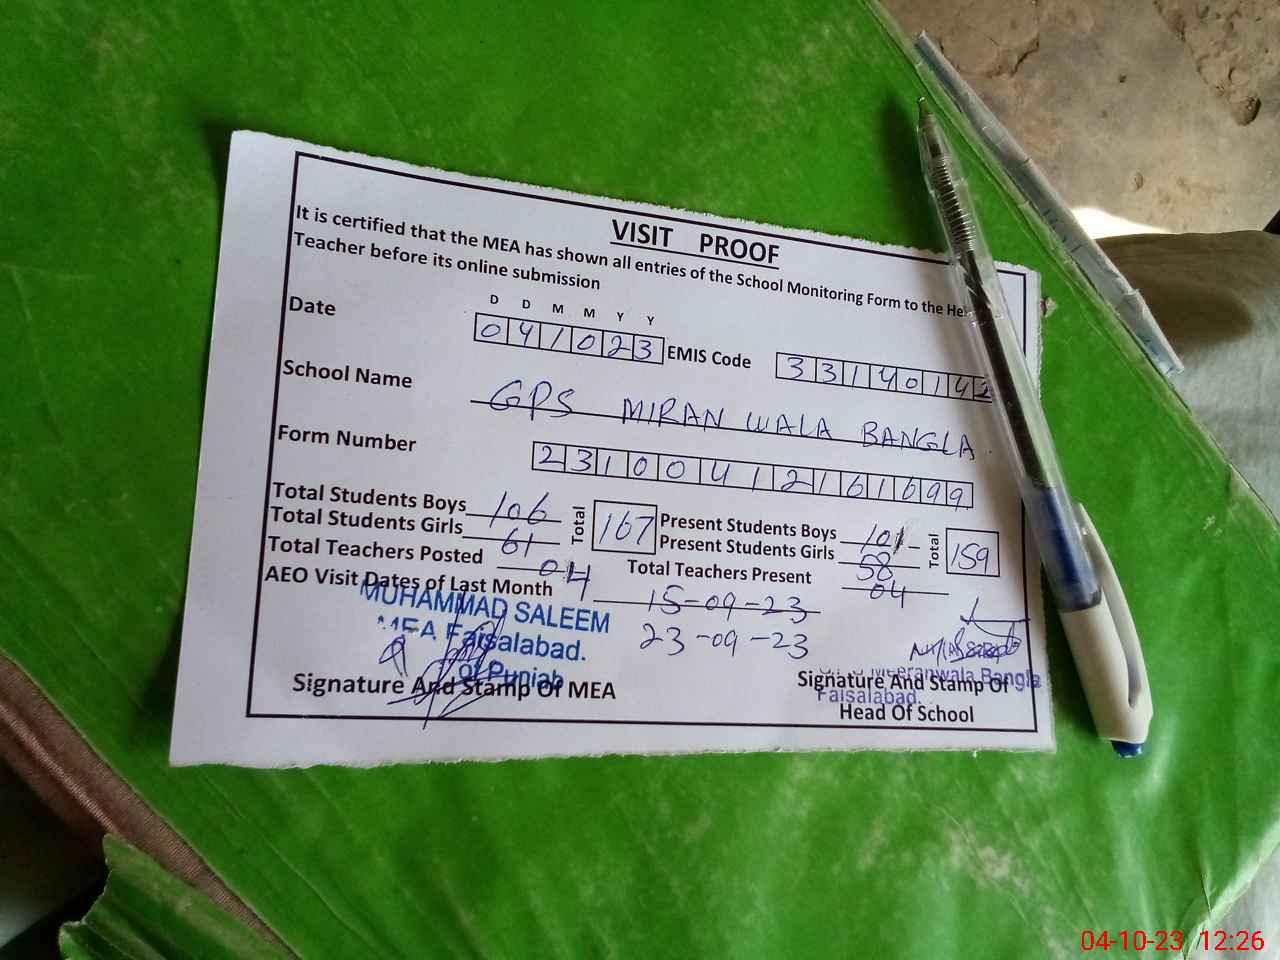 VISIT PROOF
It is certified that the MEA has shown all entries of the School Monitoring Form to the
Teacher before its online submission
D D M M Y Y
Date 041023 EMIS Code 33140142
School Name GPS MIRAN WALA BANGLA
Form Number 23100412161699
Total Students Boys 106 Total 167 Present Students Boys 101 Total 159
Total Students Girls 61 Present Students Girls 58
Total Teachers Posted 04 Total Teachers Present 04
AEO Visit Dates of Last Month 15-09-23
23-09-23
MUHAMMAD SALEEM
MEA Faisalabad.
of Punjab
Signature And Stamp Of MEA
Meeranwala Bangla
Faisalabad.
Signature And Stamp Of
Head Of School
04-10-23 12:26